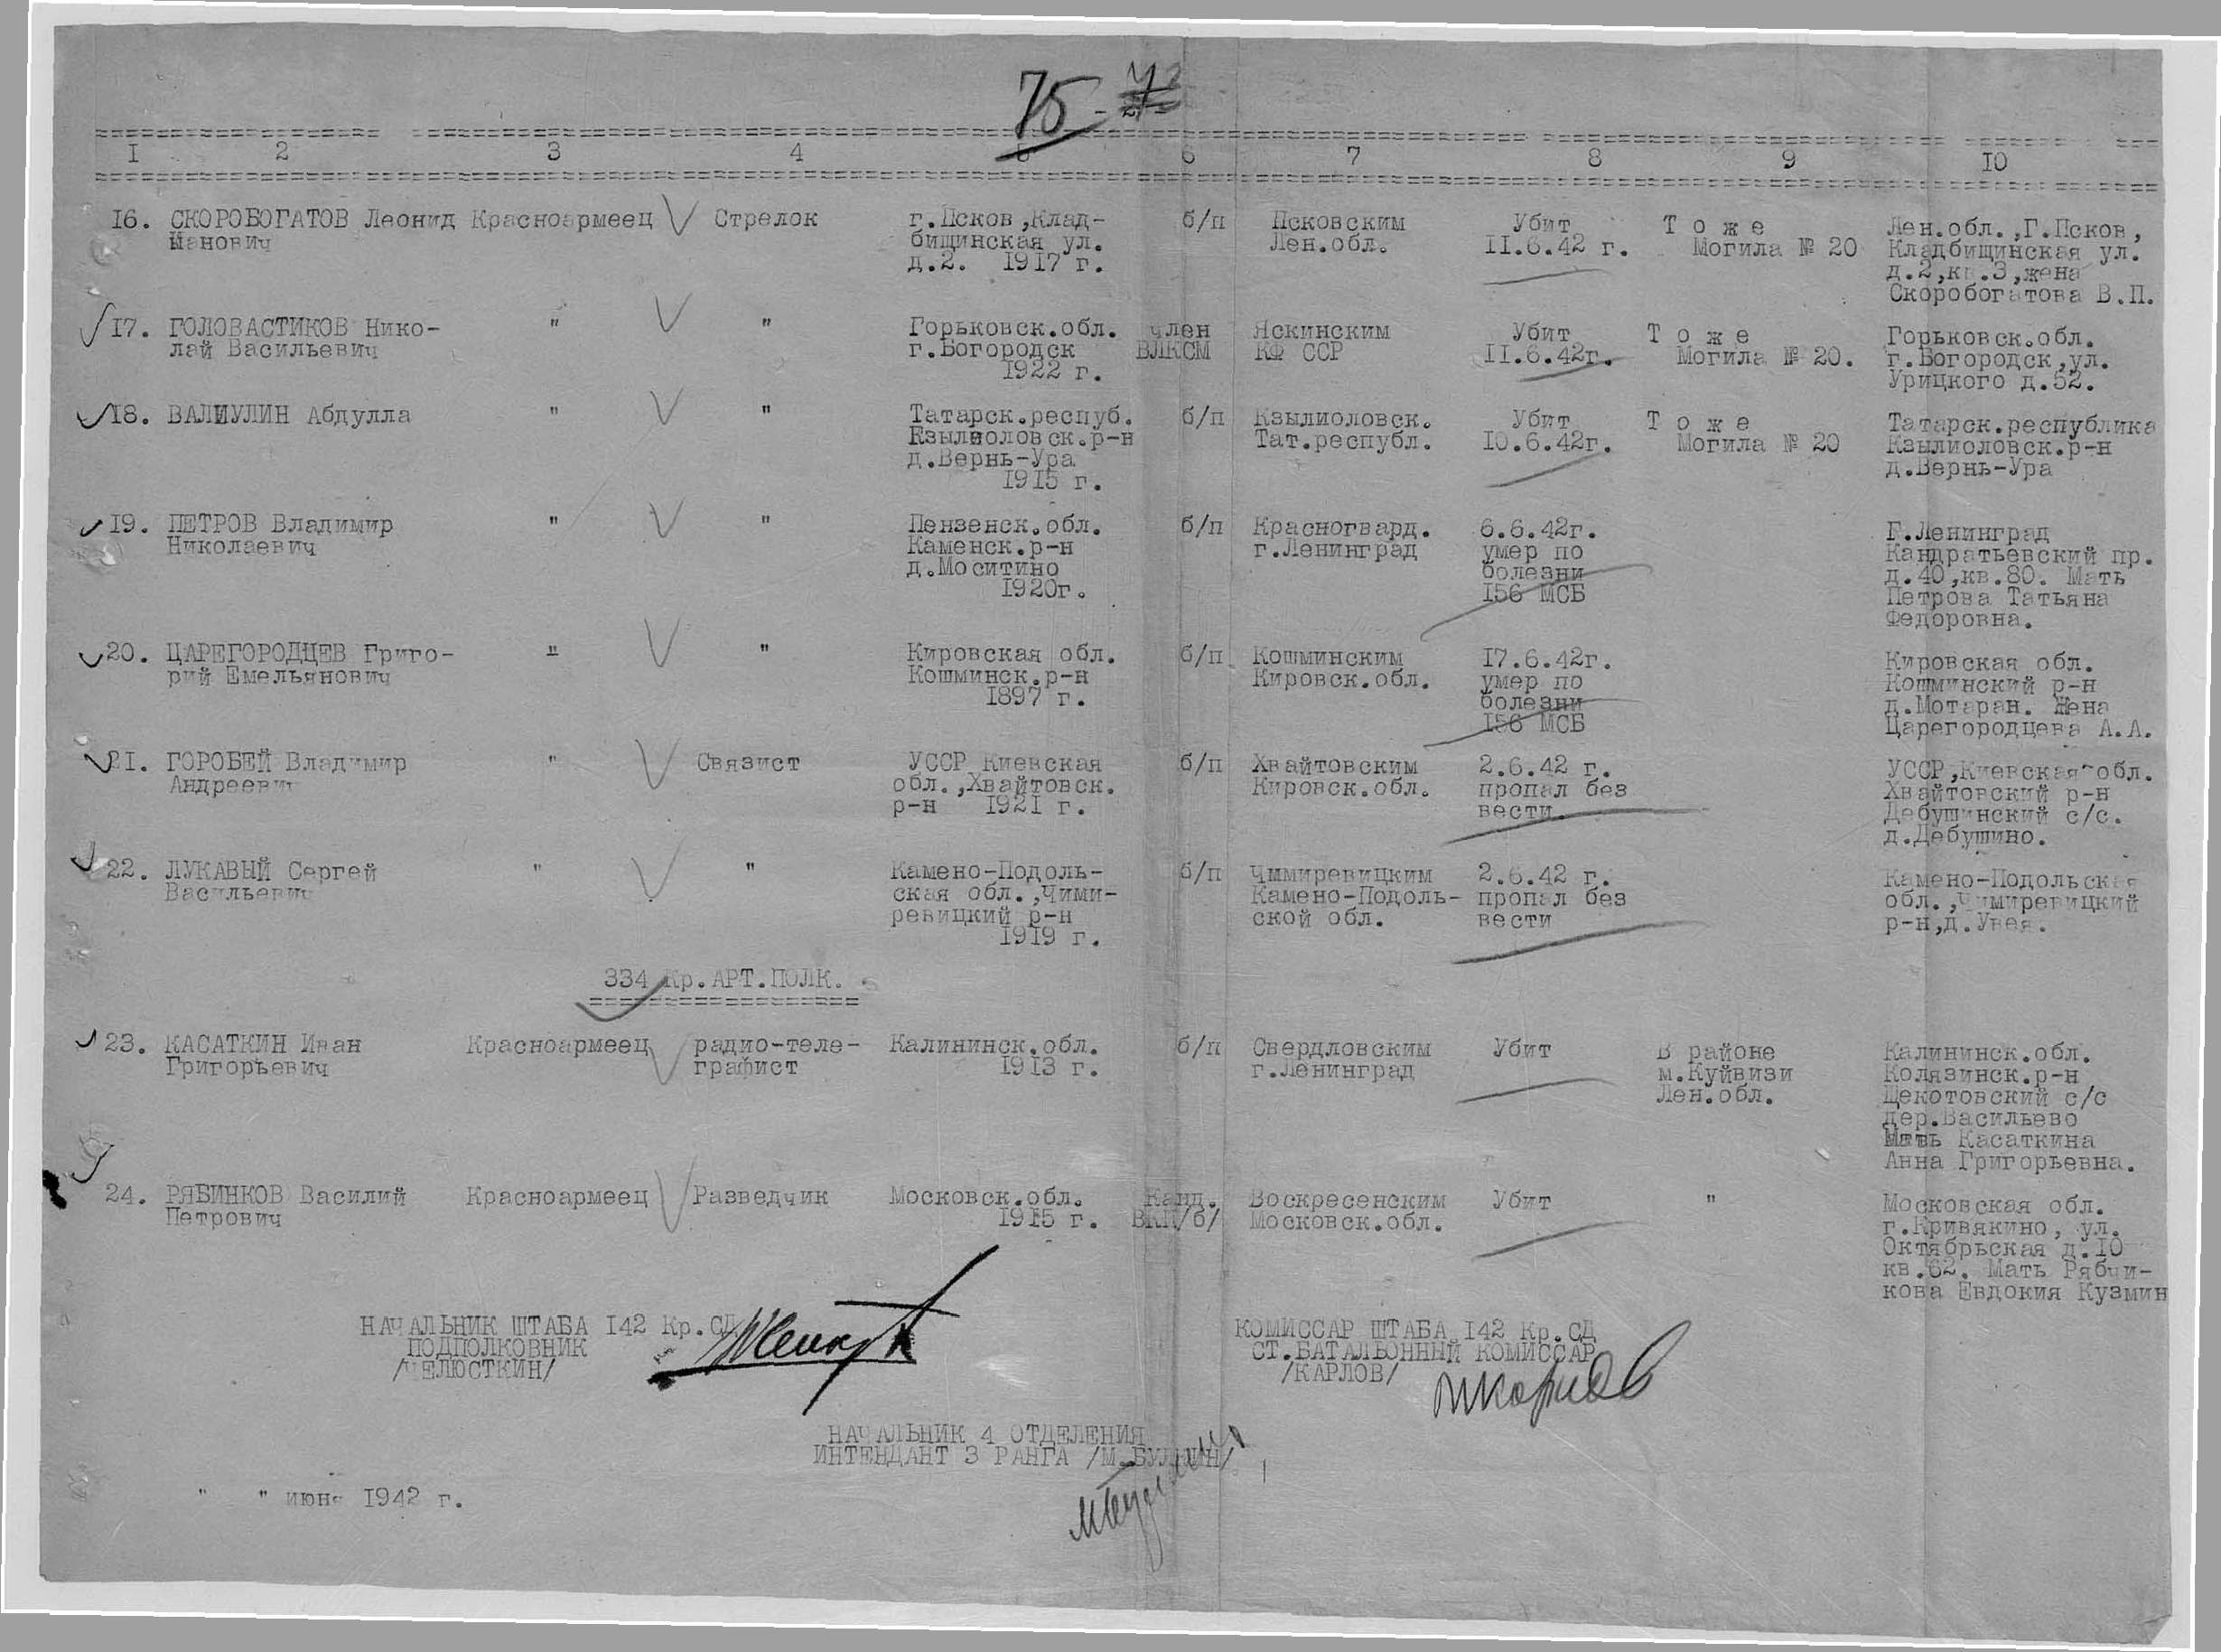 75
1 2 3 4 5 6 7 8 9 10
16. СКОРОБОГАТОВ Леонид Красноармеец Стрелок г.Псков,Клад- б/п Псковским Убит Т о ж е Лен.обл.,Г.Псков,
Иванович бищинская ул. Лен.обл. 11.6.42 г. Могила № 20 Кладбищинская ул.
д.2. 1917 г. д.2,кв.3,жена
Скоробогатова В.П.
17. ГОЛОВАСТИКОВ Нико- " " Горьковск.обл. член Яскинским Убит Т о ж е Горьковск.обл.
лай Васильевич г.Богородск ВЛКСМ КФ ССР 11.6.42г. Могила № 20. г.Богородск,ул.
1922 г. Урицкого д.52.
18. ВАЛИУЛИН Абдулла " " Татарск.респуб. б/п Кзылиоловск. Убит Т о ж е Татарск.республика
Кзылиоловск.р-н Тат.республ. 10.6.42г. Могила № 20 Кзылиоловск.р-н
д.Вернь-Ура д.Вернь-Ура
1915 г.
19. ПЕТРОВ Владимир " " Пензенск.обл. б/п Красногвард. 6.6.42г. Г.Ленинград
Николаевич Каменск.р-н г.Ленинград умер по Кандратьевский пр.
д.Моситино болезни д.40,кв.80. Мать
1920г. 156 МСБ Петрова Татьяна
Федоровна.
20. ЦАРЕГОРОДЦЕВ Григо- " " Кировская обл. б/п Кошминским 17.6.42г. Кировская обл.
рий Емельянович Кошминск.р-н Кировск.обл. умер по Кошминский р-н
1897 г. болезни д.Мотаран. Жена
156 МСБ Царегородцева А.А.
21. ГОРОБЕЙ Владимир " Связист УССР Киевская б/п Хвайтовским 2.6.42 г. УССР,Киевская обл.
Андреевич обл.,Хвайтовск. Кировск.обл. пропал без Хвайтовский р-н
р-н 1921 г. вести. Дебушинский с/с.
д.Дебушино.
22. ЛУКАВЫЙ Сергей " " Камено-Подоль- б/п Чммиревицким 2.6.42 г. Камено-Подольская
Васильевич ская обл.,Чими- Камено-Подоль- пропал без обл.,Чимиревицкий
ревицкий р-н ской обл. вести р-н,д.Увея.
1919 г.
334 Кр.АРТ.ПОЛК.
23. КАСАТКИН Иван Красноармеец радио-теле- Калининск.обл. б/п Свердловским Убит В районе Калининск.обл.
Григорьевич графист 1913 г. г.Ленинград м.Куйвизи Колязинск.р-н
Лен.обл. Щекотовский с/с
дер.Васильево
Мать Касаткина
Анна Григорьевна.
24. РЯБИНКОВ Василий Красноармеец Разведчик Московск.обл. Канд. Воскресенским Убит " Московская обл.
Петрович 1915 г. ВКП/б/ Московск.обл. г.Кривякино, ул.
Октябрьская д.10
кв.62. Мать Рябчи-
кова Евдокия Кузмин
НАЧАЛЬНИК ШТАБА 142 Кр.СД КОМИССАР ШТАБА 142 Кр.СД
ПОДПОЛКОВНИК СТ.БАТАЛЬОННЫЙ КОМИССАР
/ЧЕЛЮСТКИН/ /КАРЛОВ/
НАЧАЛЬНИК 4 ОТДЕЛЕНИЯ
ИНТЕНДАНТ 3 РАНГА /М.БУЛКИН/
" " июня 1942 г.